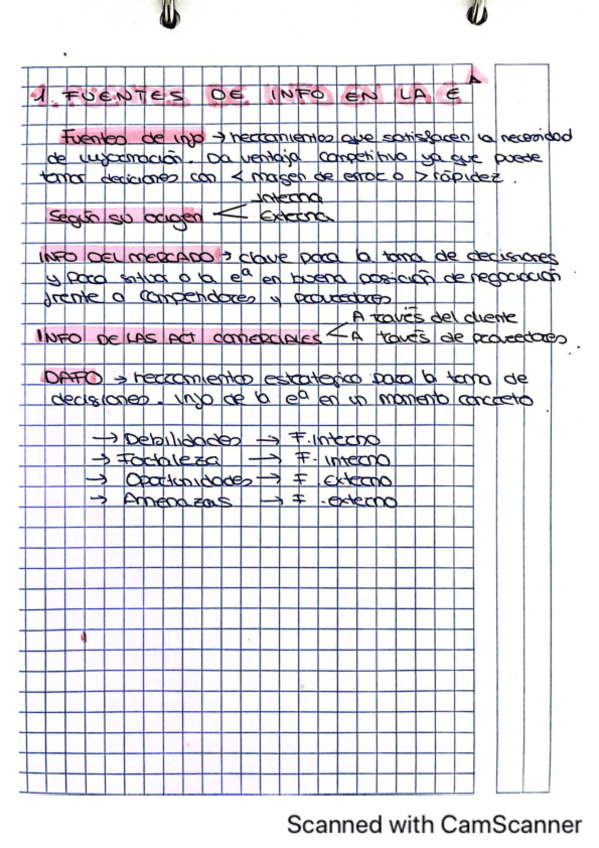 1. FUENTES DE INFO EN LA Eᴬ
Fuentes de info → herramientas que satisfacen la necesidad
de información. Da ventaja competitiva ya que puede
tomar decisiones con < margen de error o > rápidez.
Según su origen < Interna
Externa
INFO DEL MERCADO → clave para la toma de decisiones
y para situar a la eª en buena posición de negociación
frente a competidores y proveedores
INFO DE LAS ACT COMERCIALES < A través del cliente
A través de proveedores.
DAFO → herramienta estrategica para la toma de
decisiones. Info de la eª en un momento concreto
→ Debilidades → F. Interno
→ Fortaleza → F. interno
→ Oportunidades → F. externo
→ Amenazas → F. externo
Scanned with CamScanner